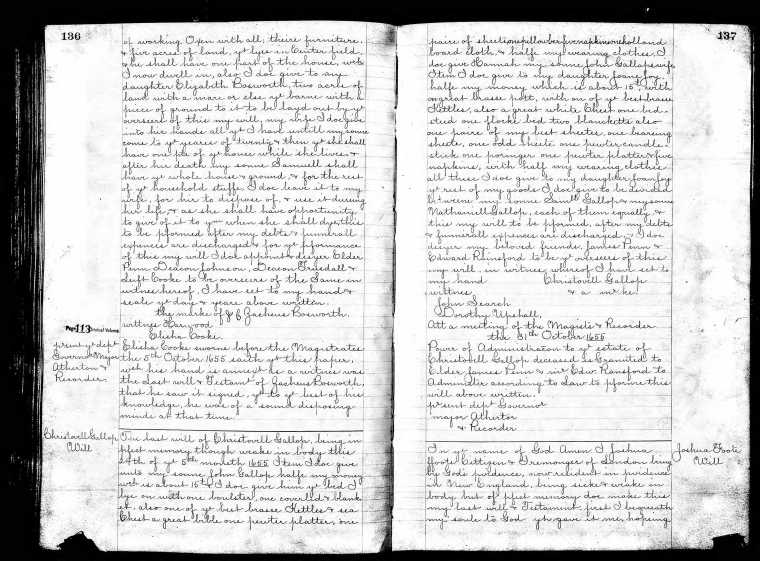 136
of working Oxen with all, theire furniture
& five acres of land, yt lyes in Center field,
& she shall have one part of the house, wch
I now dwell in, also I doe give to my
daughter Elizabeth Bosworth, two acres of
land with a mare or else yt barne with a
piece of ground to it to be layd out by yt
overseers of this my will, my wife I doe give
into her hands all yt I have untill my sonne
come to yt yeares of twenty & then yt she shall
have one pte of yt house while she lives &
after his death my sonne Samuell shall
have yt whole house & ground, & for the rest
of yt household stuffe I doe leave it to my
wife, for her to dispose of, & use it during
her life, & as she shall have opportunity
to give it to ym when she shall dye, this
to be pformed after my debts & funerall
expences are discharged & for yt pformance
of this my will I doe appoint & desyer Elder
Penn Deacon Johnson, Deacon Truesdall &
Leift Cooke to be overseers of the Same in
witnes hereof, I have set to my hand &
seale yt day & yeare above written.
the marke of Zacheus Bosworth.
witnes Harwood
Elisha Cooke.
Page 113 Original Volume
Elisha Cooke sworne before the Magistrates
the 5th October 1655 saith yt this paper,
wch his hand is annext as a witnes was
the Last will & Testamt of Zacheus Bosworth,
that he saw it signed, yt to yt best of his
knowledge, he was of a sound disposing
minde at that time
prsent yt dept
Governor Major
Atherton &
Recorder.
Christovll Gallop
Will
The last will of Christovell Gallop, being in
pfect memory though weake in body this
24th of yt 5th moneth 1655 Item I doe give
unto my sonne John Gallop halfe my money
wch is about 15tt & I doe give him yt bed I
lye on with one boulster, one coverled & blank
et. also one of yt best brasse Kettles & sea
Chest a great bible one pewter platter, one
137
paire of sheets, one pillowber, five napkins one holland
board cloth, & halfe my wearing clothes I
doe give Hannah my sonne John Gallops wife
Item I doe give to my daughter Joane Joy
halfe my money which is about 15tt, with
on great brasse pott, with on of yt best brasse
Kettles, also a great white Chest one bed-
sted one flocke bed two blanketts also
one paire of my best sheetes, one bearing
sheete, one odd sheete one pewter candle-
stick one poringer one pewter platter & five
napkins, with half my wearing clothes
all these I doe give to my daughter Joane Joy
yt rest of my goods I doe give to be devided
betweene my sonne Samll Gallop & my sonne
Nathaniell Gallop, each of them equally &
this my will to be pformed, after my debts
& funerall expences are discharged, & I doe
desyer my beloved friends, James Penn &
Edward Rainsford to be yt overseers of this
my will, in witnes, whereof I have set to
my hand Christovell Gallop
witnes & a mrke.
John Search
Dorothy Upshall,
Att a meeting of the Magists & Recorder
the 31th October 1655
Power of Administraton to yt estate of
Christovll Gallop deceased is Granted to
Elder James Penn & mr Edw. Rainsford to
Administer according to Law to pforme this
will above written.
prsent dept Governor
major Atherton
& Recorder
Joshua Foote
Will
In yt name of God Amen I Joshua
Foote Cittizen & Iremonger of London being
by Gods pvidence, now resident in pvidence
in New England, being sicke & weake in
body but of pfect memory doe make this
my last will & Testament first I bequeath
my soule to God yt gave it me, hoping